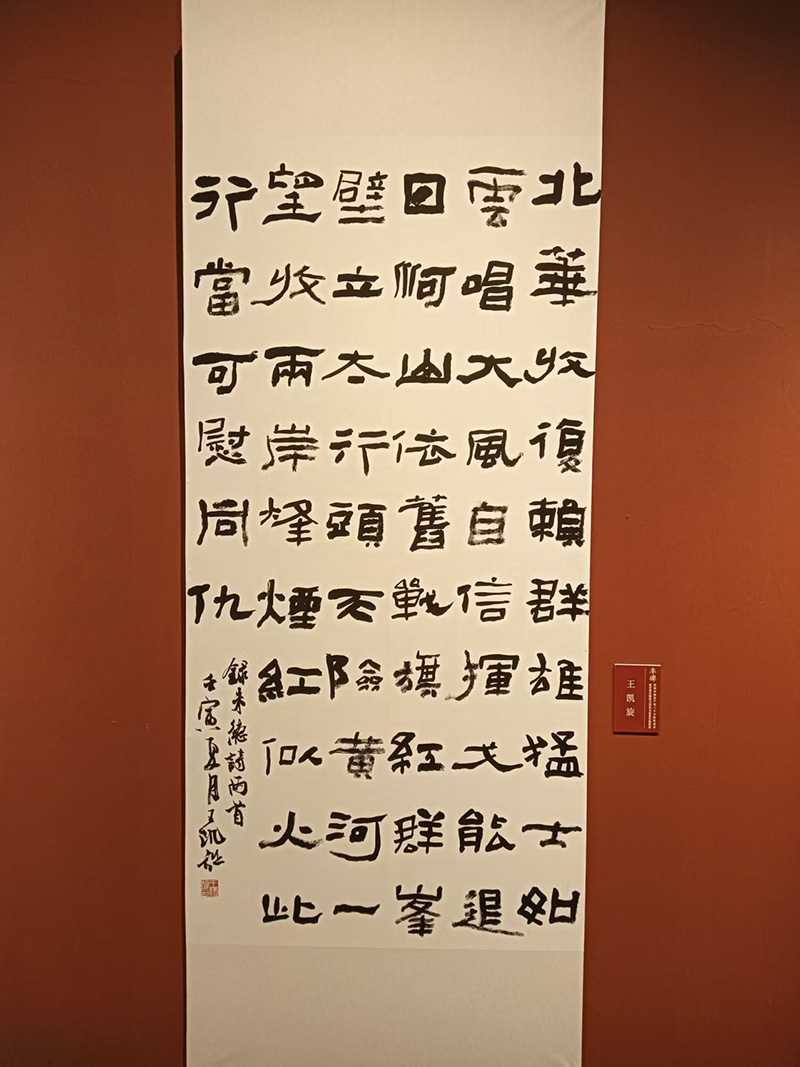 北華收復賴群雄猛士如
雲唱大風自信揮戈能退
日河山依舊戰旗紅群峯
壁立太行頭天險黄河一
望收兩岸烽煙紅似火此
行當可慰同仇
録朱德詩兩首
壬寅夏月王凱旋
王凱旋